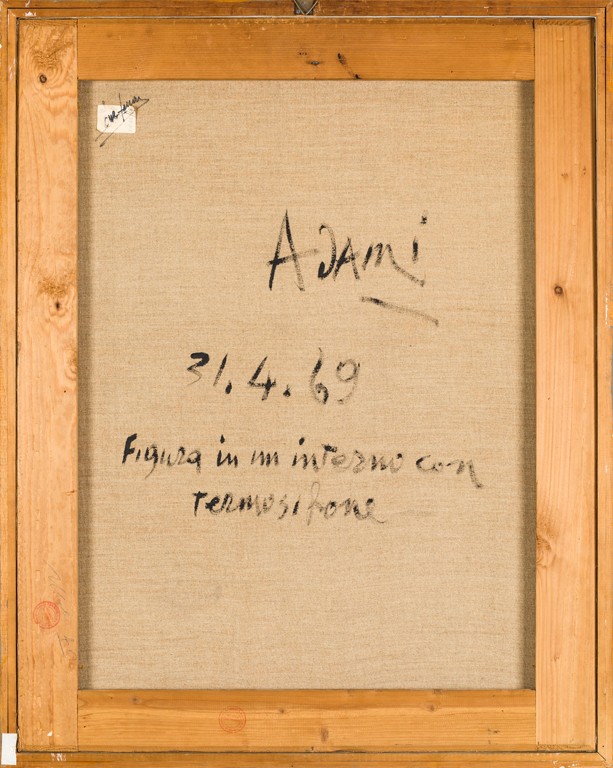 ADAMi
31.4.69
Figura in un interno con
Termosifone